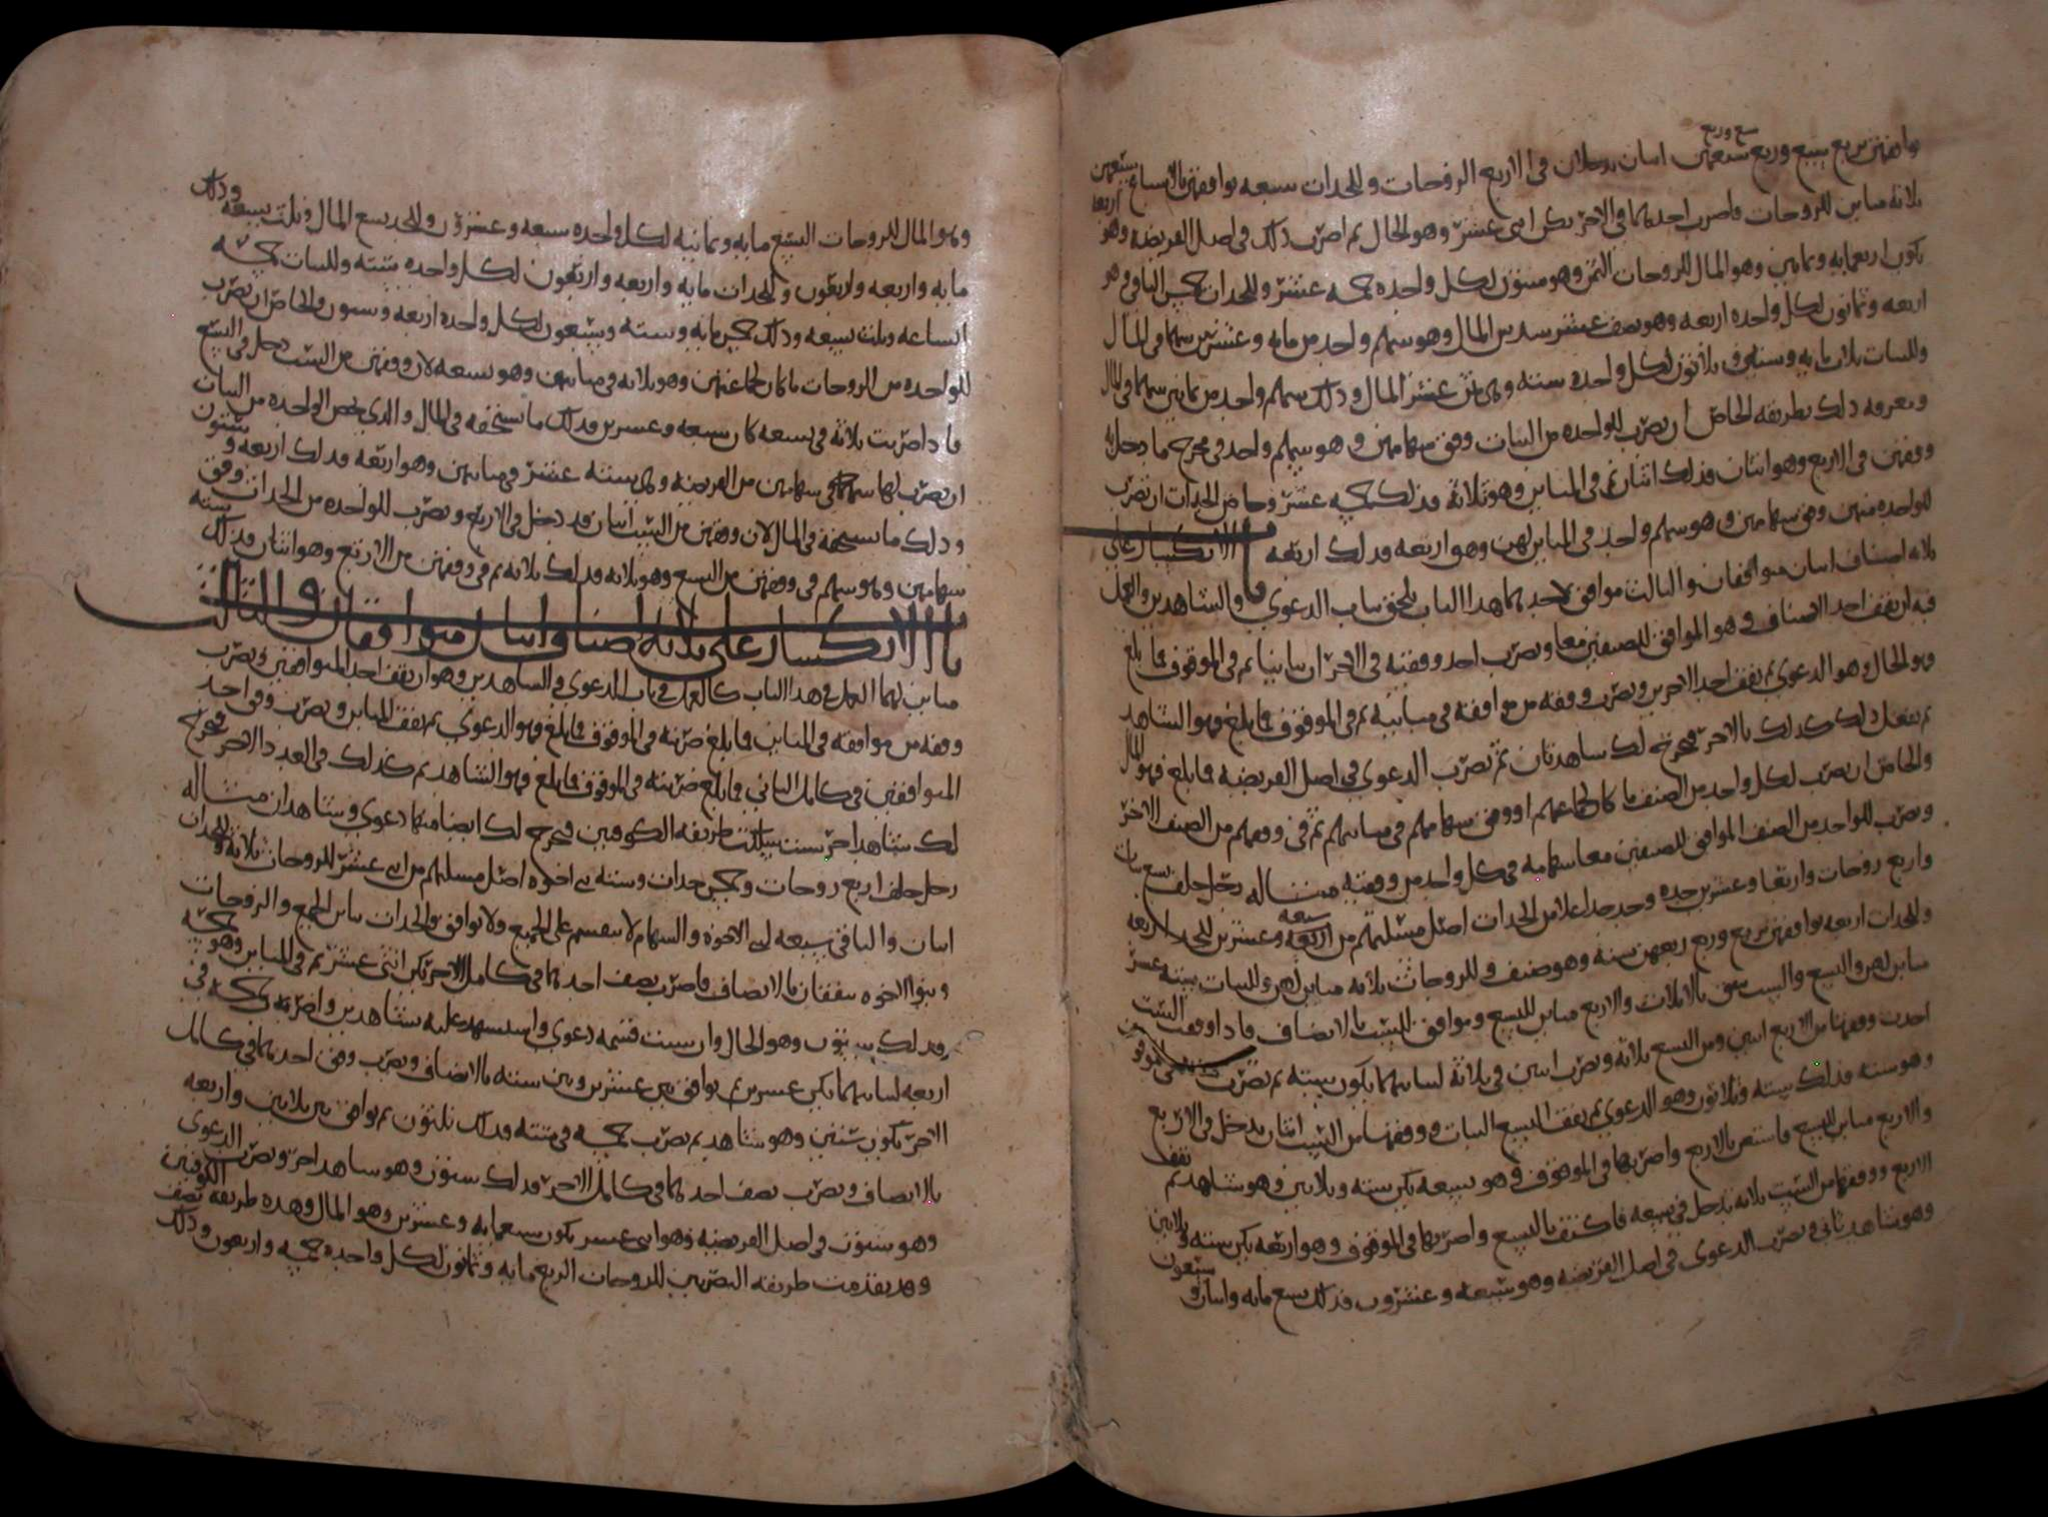 توافقهن بربع سبع وربع سبعهن اسان يدخلان في الاربع الزوجات وللجدات سبعه توافقهن بالاسباع سبعهن
ثلاثه مباين للزوجات فاضرب احدهما في الاخر يكن اثني عشر وهو الحال ثم اضرب ذلك في اصل الفريضه وهو اربعون
يكون اربعمايه وثمانين وهو المال للزوجات الثمن وهو ستون لكل واحده خمسه عشر وللجدات خمس الباقي وهو
اربعه وثمانون لكل واحده اربعه وهو نصف عشر سدس المال وهو سهم واحد من مايه وعشرين سهما في المال
وللبنات ثلاث مايه وسته وثلاثون لكل واحده سته وهي ثمن عشر المال وذلك سهم واحد من ثمانين سهما في المال
ومعرفه ذلك بطريقه الخاص ان تضرب للواحده من البنات وفق سهامهن وهو سهم واحد في مخرج ما دخل به
وفقهن في الاربع وهو اثنان فذلك اثنان ثم في المباين وهو ثلاثه فذلك خمسه عشر وخاص الجدات ان تضرب
للواحده منهن وفق سهامهن وهو سهم واحد في المباين لهن وهو اربعه فذلك اربعه باب الانكسار على
ثلاثه اصناف اسان متوافقان والثالث موافق لاحدهما هذا الباب يلحق بباب الدعوى والشاهدين والعمل
فيه ان تقف احد الاصناف وهو الموافق للصنفين معا وتضرب احد وفقيه في الاخر ان تباينا ثم في الموقوف فما بلغ
فهو الحال وهو الدعوى ثم تقف احد الاخرين وتضرب وفقه من موافقه في مباينه ثم في الموقوف فما بلغ فهو الشاهد
ثم تفعل ذلك كذلك بالاخر فيخرج لك شاهدان ثم تضرب الدعوى في اصل الفريضه فما بلغ فهو المال
والخاص ان تضرب لكل واحد من الصنف ما كان لجماعتهم او وفق سهامهم في مباينهم ثم في وفقهم من الصنف الاخر
وتضرب للواحد من الصنف الموافق للصنفين معا سهامه في كل واحد من وفقيه مثاله رجل خلف تسع بنات
واربع زوجات واربعا وعشرين جده وجد جدا اعلا من الجدات اصل مسئلتهم من سبعه وعشرين للجد اربعه
وللجدات اربعه توافقهن بربع وربع ربعهن سته وهو صنف وللزوجات ثلاثه مباين لهن وللبنات سته عشر
مباين لهن والتسع والست تتفق بالاثلاث والاربع مباين للتسع وموافق للست بالانصاف فاذا اوقفت الست
اخذت وفقها من الاربع اثنين ومن التسع ثلاثه وتضرب اثنين في ثلاثه لتباينهما يكون سته ثم تضرب في الموقوف
وهو سته فذلك سته وثلاثون وهو الدعوى ثم تقف التسع البنات ووفقها من الست اثنان يدخل في الاربع
والاربع مباين للتسع فاستغن بالاربع واضربها في الموقوف وهو تسعه يكن سته وثلاثين وهو شاهد ثم تقف
الاربع ووفقها من الست ثلاثه تدخل في تسعه فاكتف بالتسع واضربها في الموقوف وهو اربعه يكن سته وثلاثين
وهو شاهد ثاني وتضرب الدعوى في اصل الفريضه وهو سبعه وعشرون فذلك تسع مايه واثنان وسبعون
وهو المال للزوجات التسع مايه وثمانيه لكل واحده سبعه وعشرون وللجد تسع المال وثلث تسعه وذلك
مايه واربعه واربعون وللجدات مايه واربعه واربعون لكل واحده سته وللبنات خمسه
اتساعه وثلث تسعه وذلك خمس مايه وسته وسبعون لكل واحده اربعه وستون والخاص ان تضرب
للواحده من الزوجات ما كان لجماعتهن وهو ثلاثه في مباينهن وهو تسعه لان وفقهن من الست دخل في التسع
فاذا ضربت ثلاثه في تسعه كان سبعه وعشرين فذلك ما تستحقه في المال والذي يخص الواحده من البنات
ان تضرب لها سهامها في سهامهن من الفريضه وهي سته عشر في مباينهن وهو اربعه فذلك اربعه وستون
وذلك ما تستحقه في المال لان وفقهن من الست اثنان قد دخل في الاربع وتضرب للواحده من الجدات وفق
سهامهن وهو سهم في وفقهن من التسع وهو ثلاثه فذلك ثلاثه ثم في وفقهن من الاربع وهو اثنان فذلك سته
باب الانكسار على ثلاثه اصناف اسان متوافقان والثالث
مباين لهما العمل في هذا الباب كالعمل في باب الدعوى والشاهدين وهو ان تقف احد المتوافقين وتضرب
وفقه من موافقه في المباين فما بلغ ضربته في الموقوف فما بلغ فهو الدعوى ثم تقف المباين وتضرب وفق احد
المتوافقين في كامل الثاني فما بلغ ضربته في الموقوف فما بلغ فهو الشاهد ثم كذلك في العدد الاخر فيخرج
لك شاهد اخر وان شئت سلكت طريقه الكوفيين فيخرج لك ايضا منها دعوى وشاهدان مثاله
رجل خلف اربع زوجات وخمس جدات وسته بني اخوه اصل مسئلتهم من اثني عشر للزوجات ثلاثه وللجدات
اثنان والباقي سبعه لبني الاخوه والسهام لا تنقسم على الجميع ولا توافق والجدات تباين الجميع والزوجات
وبنو الاخوه يتفقان بالانصاف فاضرب نصف احدهما في كامل الاخر يكن اثني عشر ثم في المباين وهو خمسه
فذلك ستون وهو الحال وان شئت قسمه دعوى واستشهد عليه بشاهدين واضربه خمسه في
اربعه لتباينهما يكن عشرين ثم توافق بين عشرين وبين سته بالانصاف وتضرب وفق احدهما في كامل
الاخر يكون ستين وهو شاهد ثم تضرب خمسه في سته فذلك ثلثون ثم توافق بين ثلاثين واربعه
بالانصاف وتضرب نصف احدهما في كامل الاخر فذلك ستون وهو شاهد اخر وتضرب الدعوى
وهو ستون في اصل الفريضه وهو اثني عشر يكون سبعمايه وعشرين وهو المال وهذه طريقه الكوفيين
وقد تقدمت طريقه البصريين للزوجات الربع مايه وثمانون لكل واحده خمسه واربعون وذلك نصف